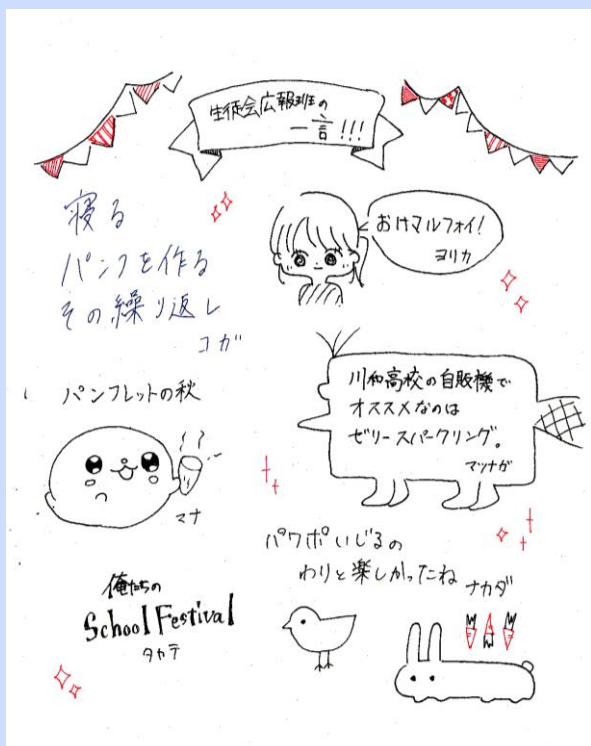 生徒会広報班の
一言!!!
寝る
パンフを作る
その繰り返し
コガ
おけマルフォイ!
ヨリカ
パンフレットの秋
マナ
川和高校の自販機で
オススメなのは
ゼリースパークリング。
マツナガ
パワポいじるの
わりと楽しかったね
ナカダ
俺たちの
School Festival
タカテ